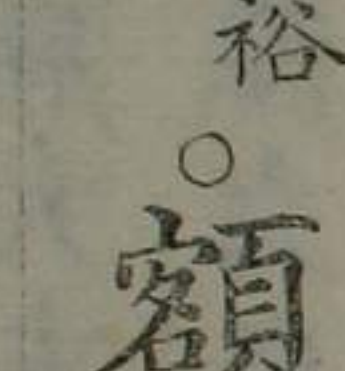 裕
○
額